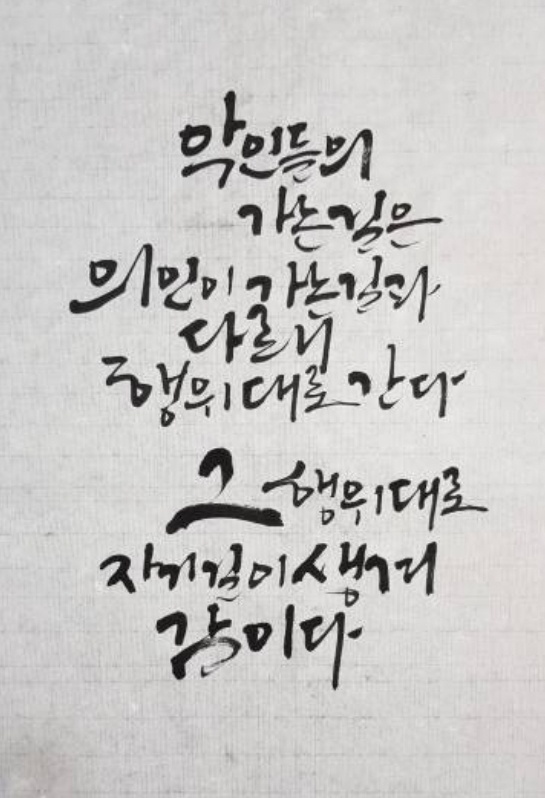 악인들의
가는길은
의인이 가는길과
다르니
행위대로 간다
그 행위대로
자기길이 생겨
감이다